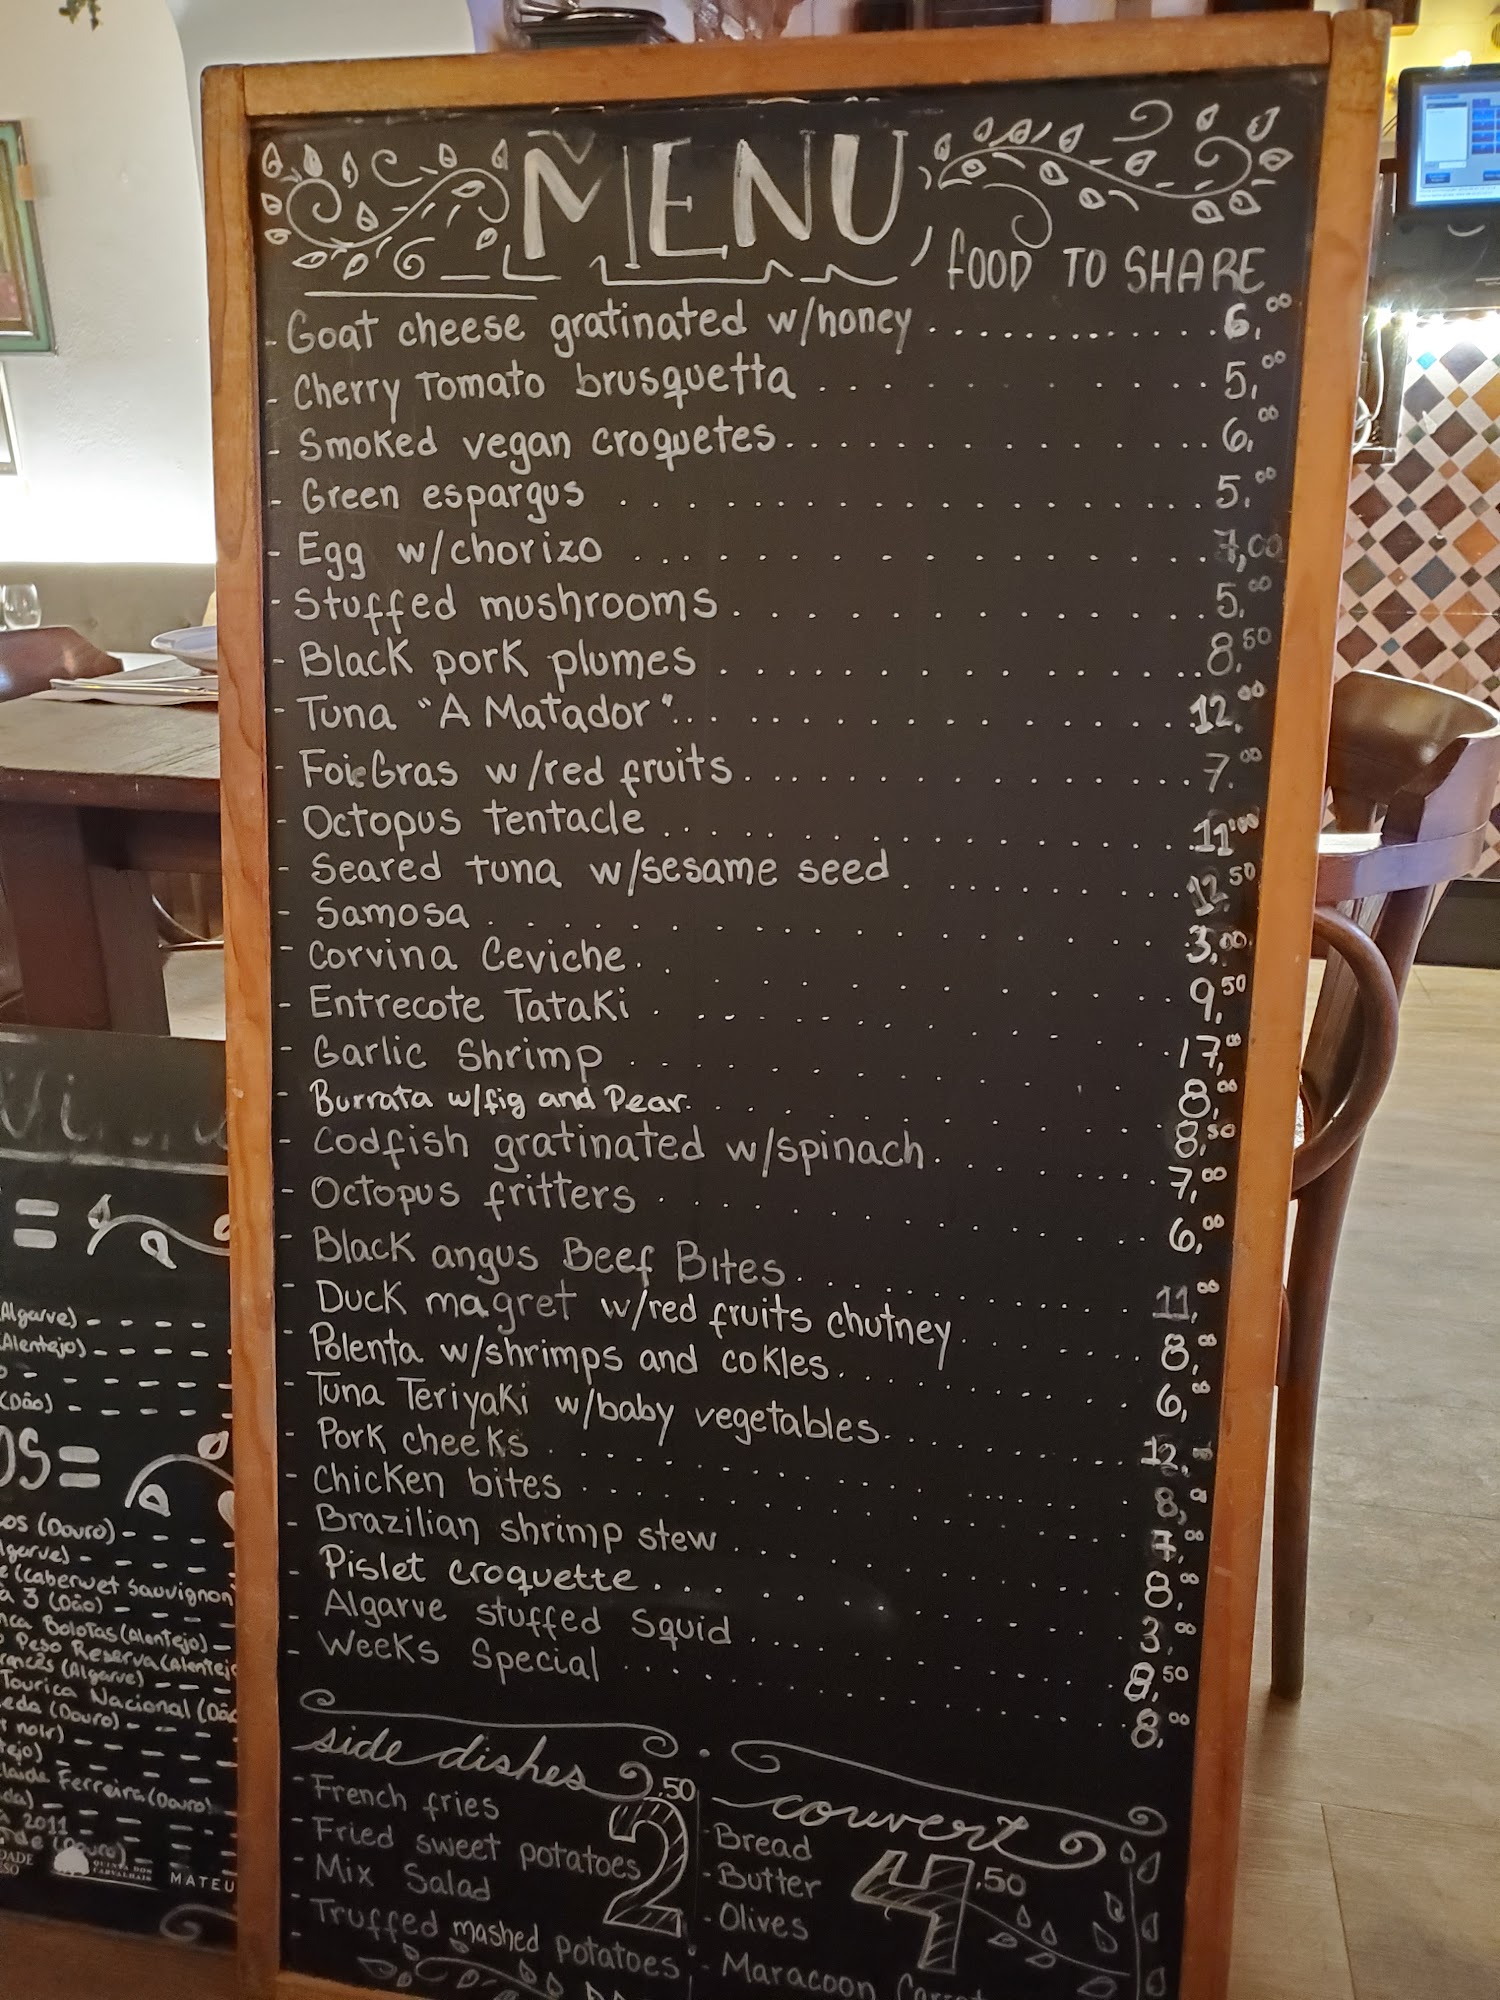 MENU
FOOD TO SHARE
- Goat cheese gratinated w/honey ............ 6,00
- Cherry Tomato brusquetta ............ 5,00
- Smoked vegan croquetes ............ 6,00
- Green espargus ............ 5,00
- Egg w/chorizo ............ 7,00
- Stuffed mushrooms ............ 5,00
- Black pork plumes ............ 8,50
- Tuna "A Matador" ............ 12,00
- FoieGras w/red fruits ............ 7,00
- Octopus tentacle ............ 11,00
- Seared tuna w/sesame seed ............ 12,50
- Samosa ............ 3,00
- Corvina Ceviche ............ 9,50
- Entrecote Tataki ............ 17,00
- Garlic Shrimp ............ 8,00
- Burrata w/fig and Pear ............ 8,50
- Codfish gratinated w/spinach ............ 7,00
- Octopus fritters ............ 6,00
- Black angus Beef Bites ............ 11,00
- Duck magret w/red fruits chutney ............ 8,00
- Polenta w/shrimps and cokles ............ 6,00
- Tuna Teriyaki w/baby vegetables ............ 12,
- Pork cheeks ............ 8,
- Chicken bites ............ 7,00
- Brazilian shrimp stew ............ 8,00
- Pislet croquette ............ 3,00
- Algarve stuffed Squid ............ 8,50
- Weeks Special ............ 8,00
side dishes
2,50
- French fries
- Fried sweet potatoes
- Mix Salad
- Truffed mashed potatoes
couvert
4,50
- Bread
- Butter
- Olives
- Maracoon
Algarve)
(Alentejo)
(Dão)
OS =
os (Douro)
lgarve)
e (Caberwet Sauvignon
a 3 (Dão)
nca Bolotas (Alentejo)
o Peso Reserva (Alentejo
rancês (Algarve)
Tourica Nacional (Dão
eda (Douro)
noir)
tejo)
laide Ferreira (Douro)
2011
MATEU